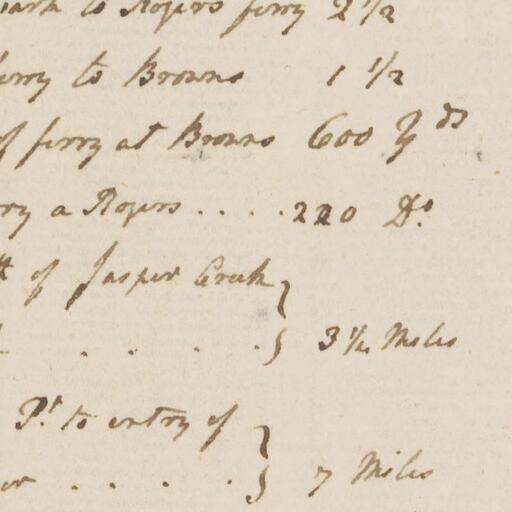 to Rogers ferry 2 1/2
to Browns 1 1/2
of ferry at Browns 600 Yds
a Rogers . . . . 220 Do.
of Jasper Creek }
. . . . } 3 1/2 Miles
Pt. to entry of }
. . . . } 7 Miles